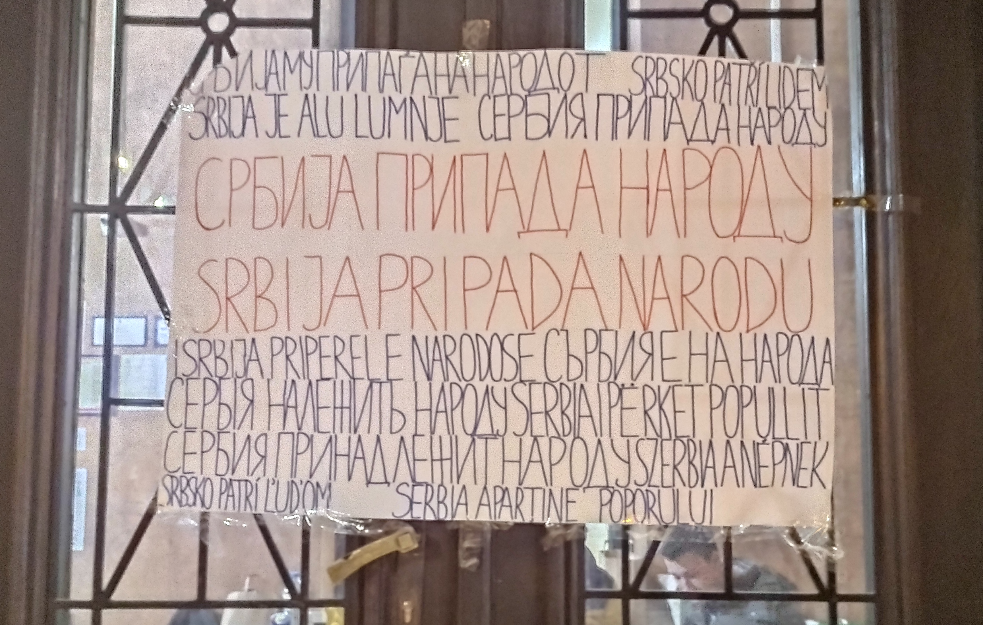 СРБИЈА МУ ПРИПАЃА НА НАРОДОТ SRBSKO PATŘÍ LIDEM
SRBIJA JE ALU LUMNJE СЕРБИЯ ПРИПАДА НАРОДУ
СРБИЈА ПРИПАДА НАРОДУ
SRBIJA PRIPADA NARODU
SRBIJA PRIPEREL E NARODOSE СЪРБИЯ Е НА НАРОДА
СЕРБІЯ НАЛЕЖИТЬ НАРОДУ SERBIA I PËRKET POPULLIT
СЕРБИЯ ПРИНАДЛЕЖИТ НАРОДУ SZERBIA A NÉPNEK
SRBSKO PATRÍ ĽUĎOM SERBIA APARTINE POPORULUI